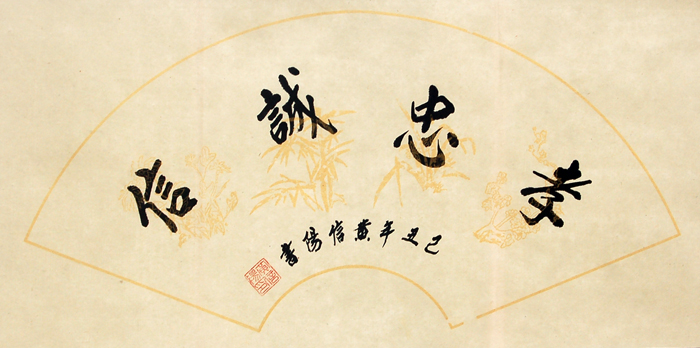 孝忠誠信
己丑年黄信陽書